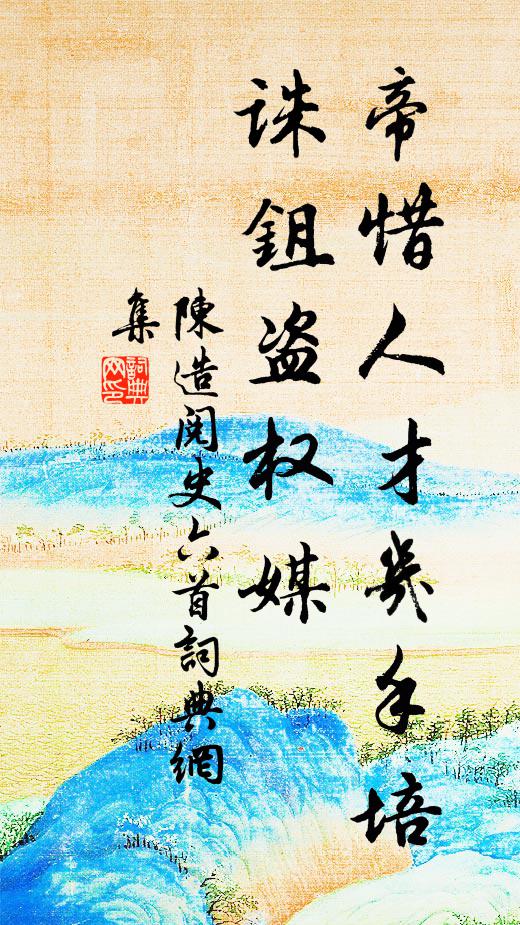 帝惜人才幾手培
誅鉏盗权媒
陳造閱史六首詞典網
集
詞典网印